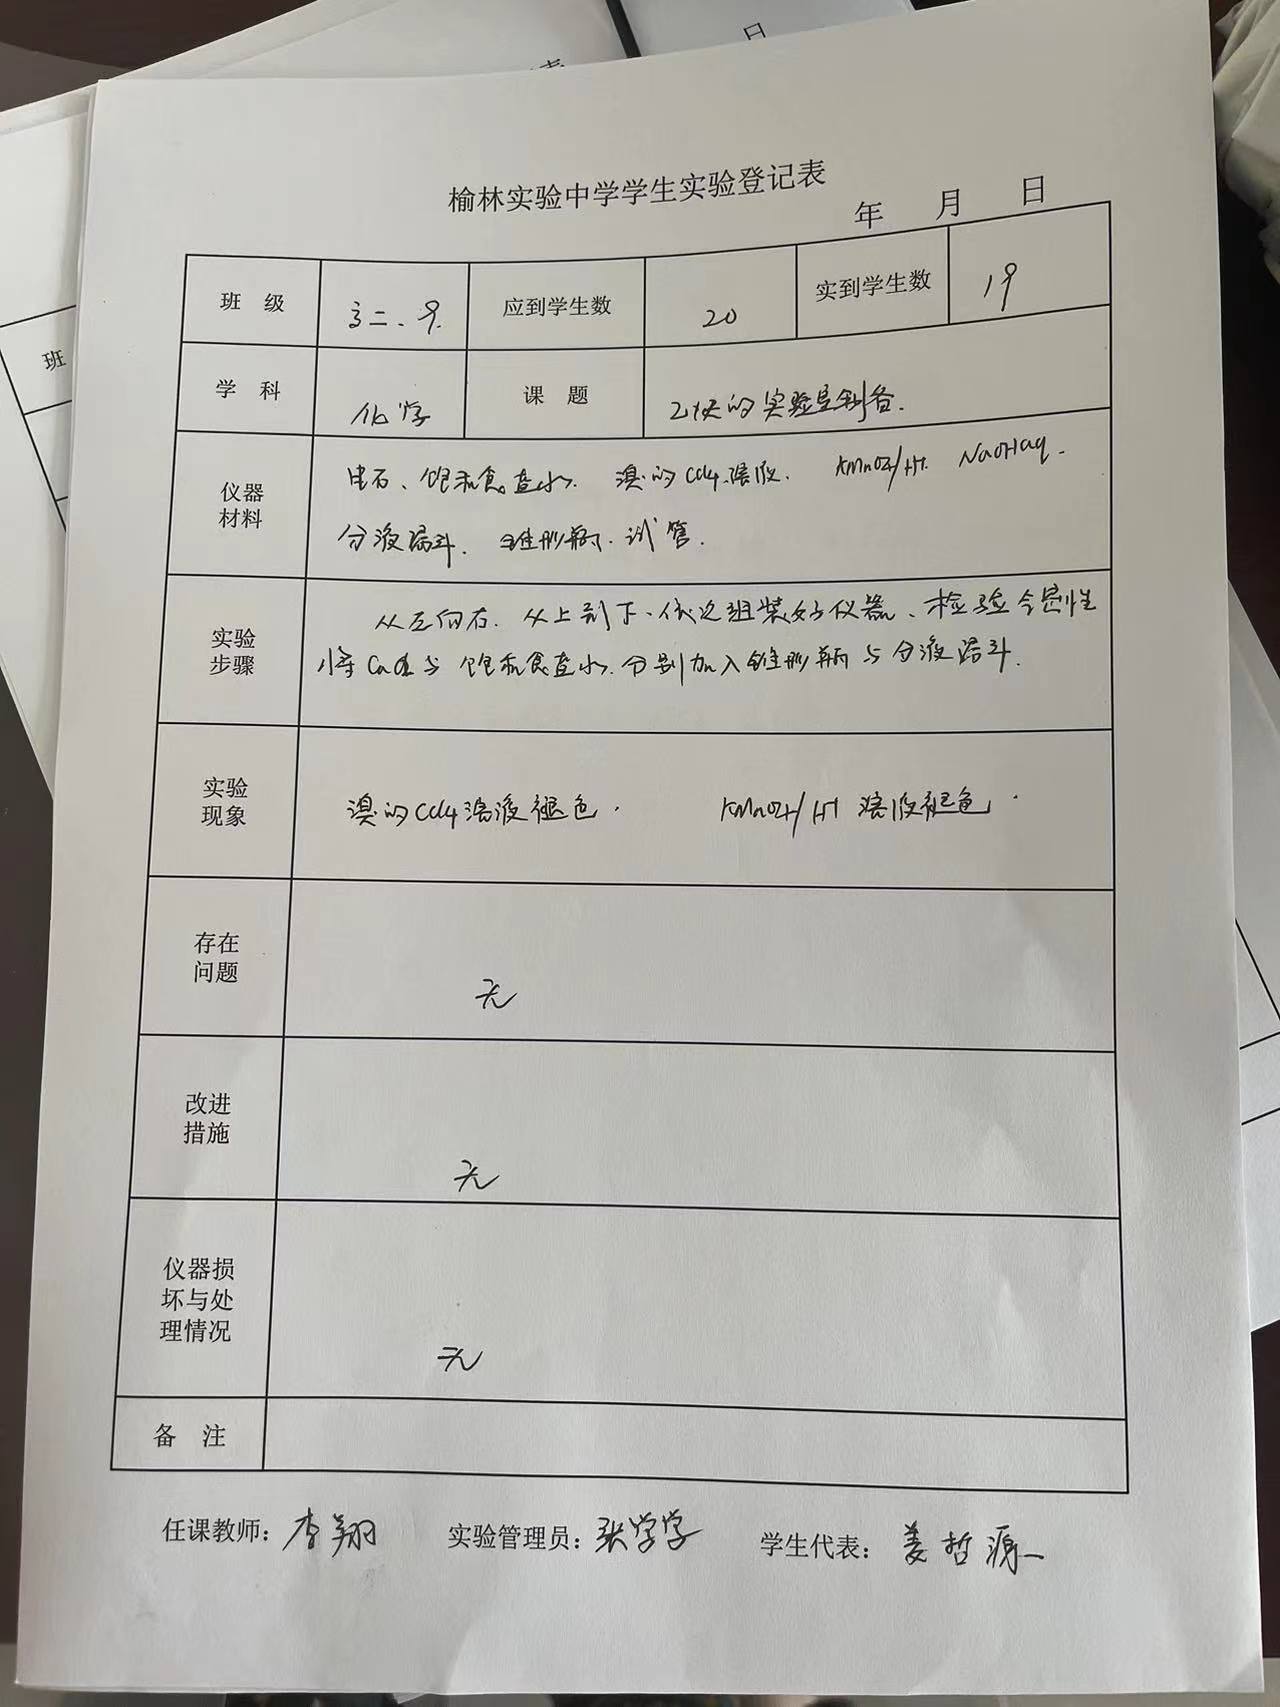 日
表
班
榆林实验中学学生实验登记表
年 月 日
班 级 高二.9. 应到学生数 20 实到学生数 19
学 科 化学 课 题 乙炔的实验室制备.
仪器材料 电石、饱和食盐水. 溴的CCl4溶液. KMnO4/H+. NaOHaq.
分液漏斗. 锥形瓶. 试管.
实验步骤 从左向右. 从上到下、依次组装好仪器、检验气密性
将CaC2与饱和食盐水.分别加入锥形瓶与分液漏斗.
实验现象 溴的CCl4溶液褪色. KMnO4/H+溶液褪色.
存在问题 无
改进措施 无
仪器损坏与处理情况 无
备 注
任课教师：李翔 实验管理员：张学学 学生代表：姜哲源